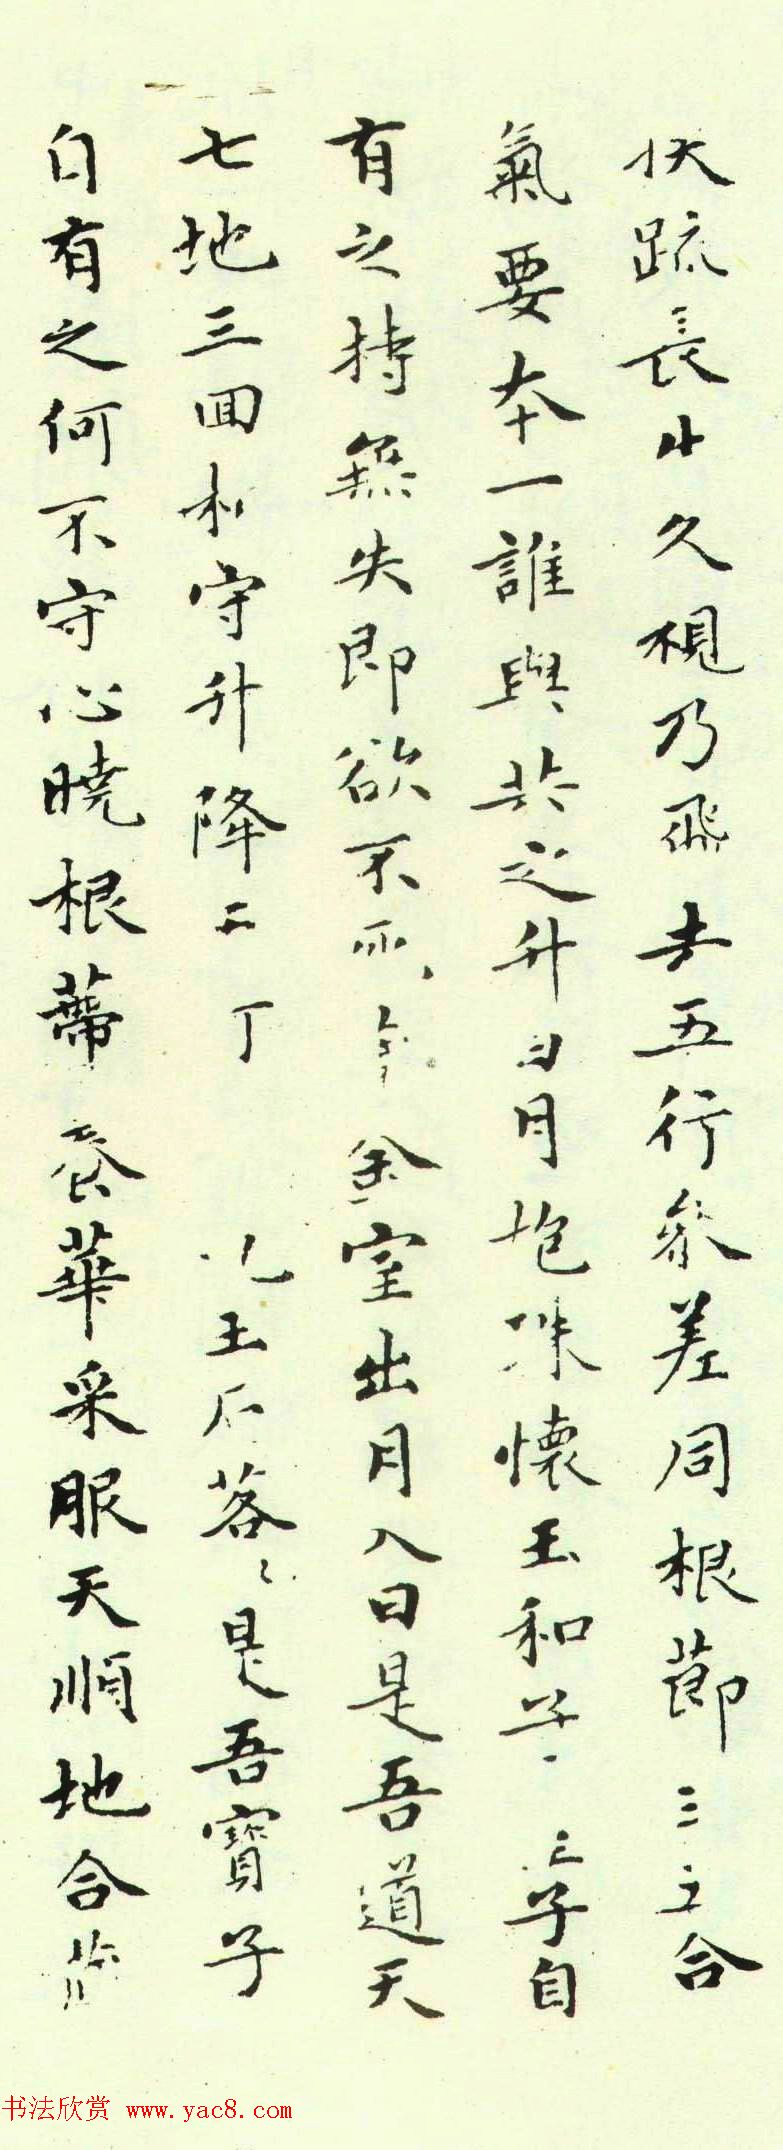 伏䟽長生久視乃飛去五行參差同根節三五合
氣要本一誰與共之升日月抱珠懷玉和子 子自
有之持無失即欲不 金室出月入日是吾道天
七地三回相守升降 玉石落〻是吾寶子
自有之何不守心曉根蒂養華采服天順地合
书法欣赏 www.yac8.com